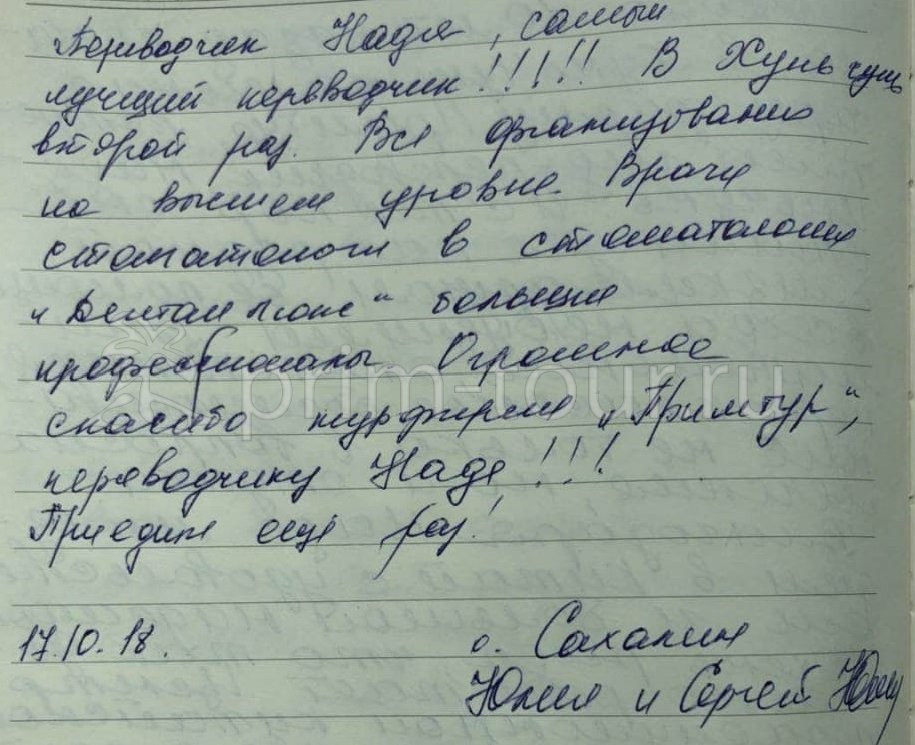 Переводчик Надя, самый
лучший переводчик!!!!! В Хуньчунь
второй раз. Все организованно
на высшем уровне. Врачи
стоматологи в стоматологии
"Дентал люкс" большие
профессионалы. Огромное
спасибо турфирме "Примтур",
переводчику Наде!!!
Приедим ещё раз!
17.10.18. о. Сахалин
Юлия и Сергей
prim-tour.ru